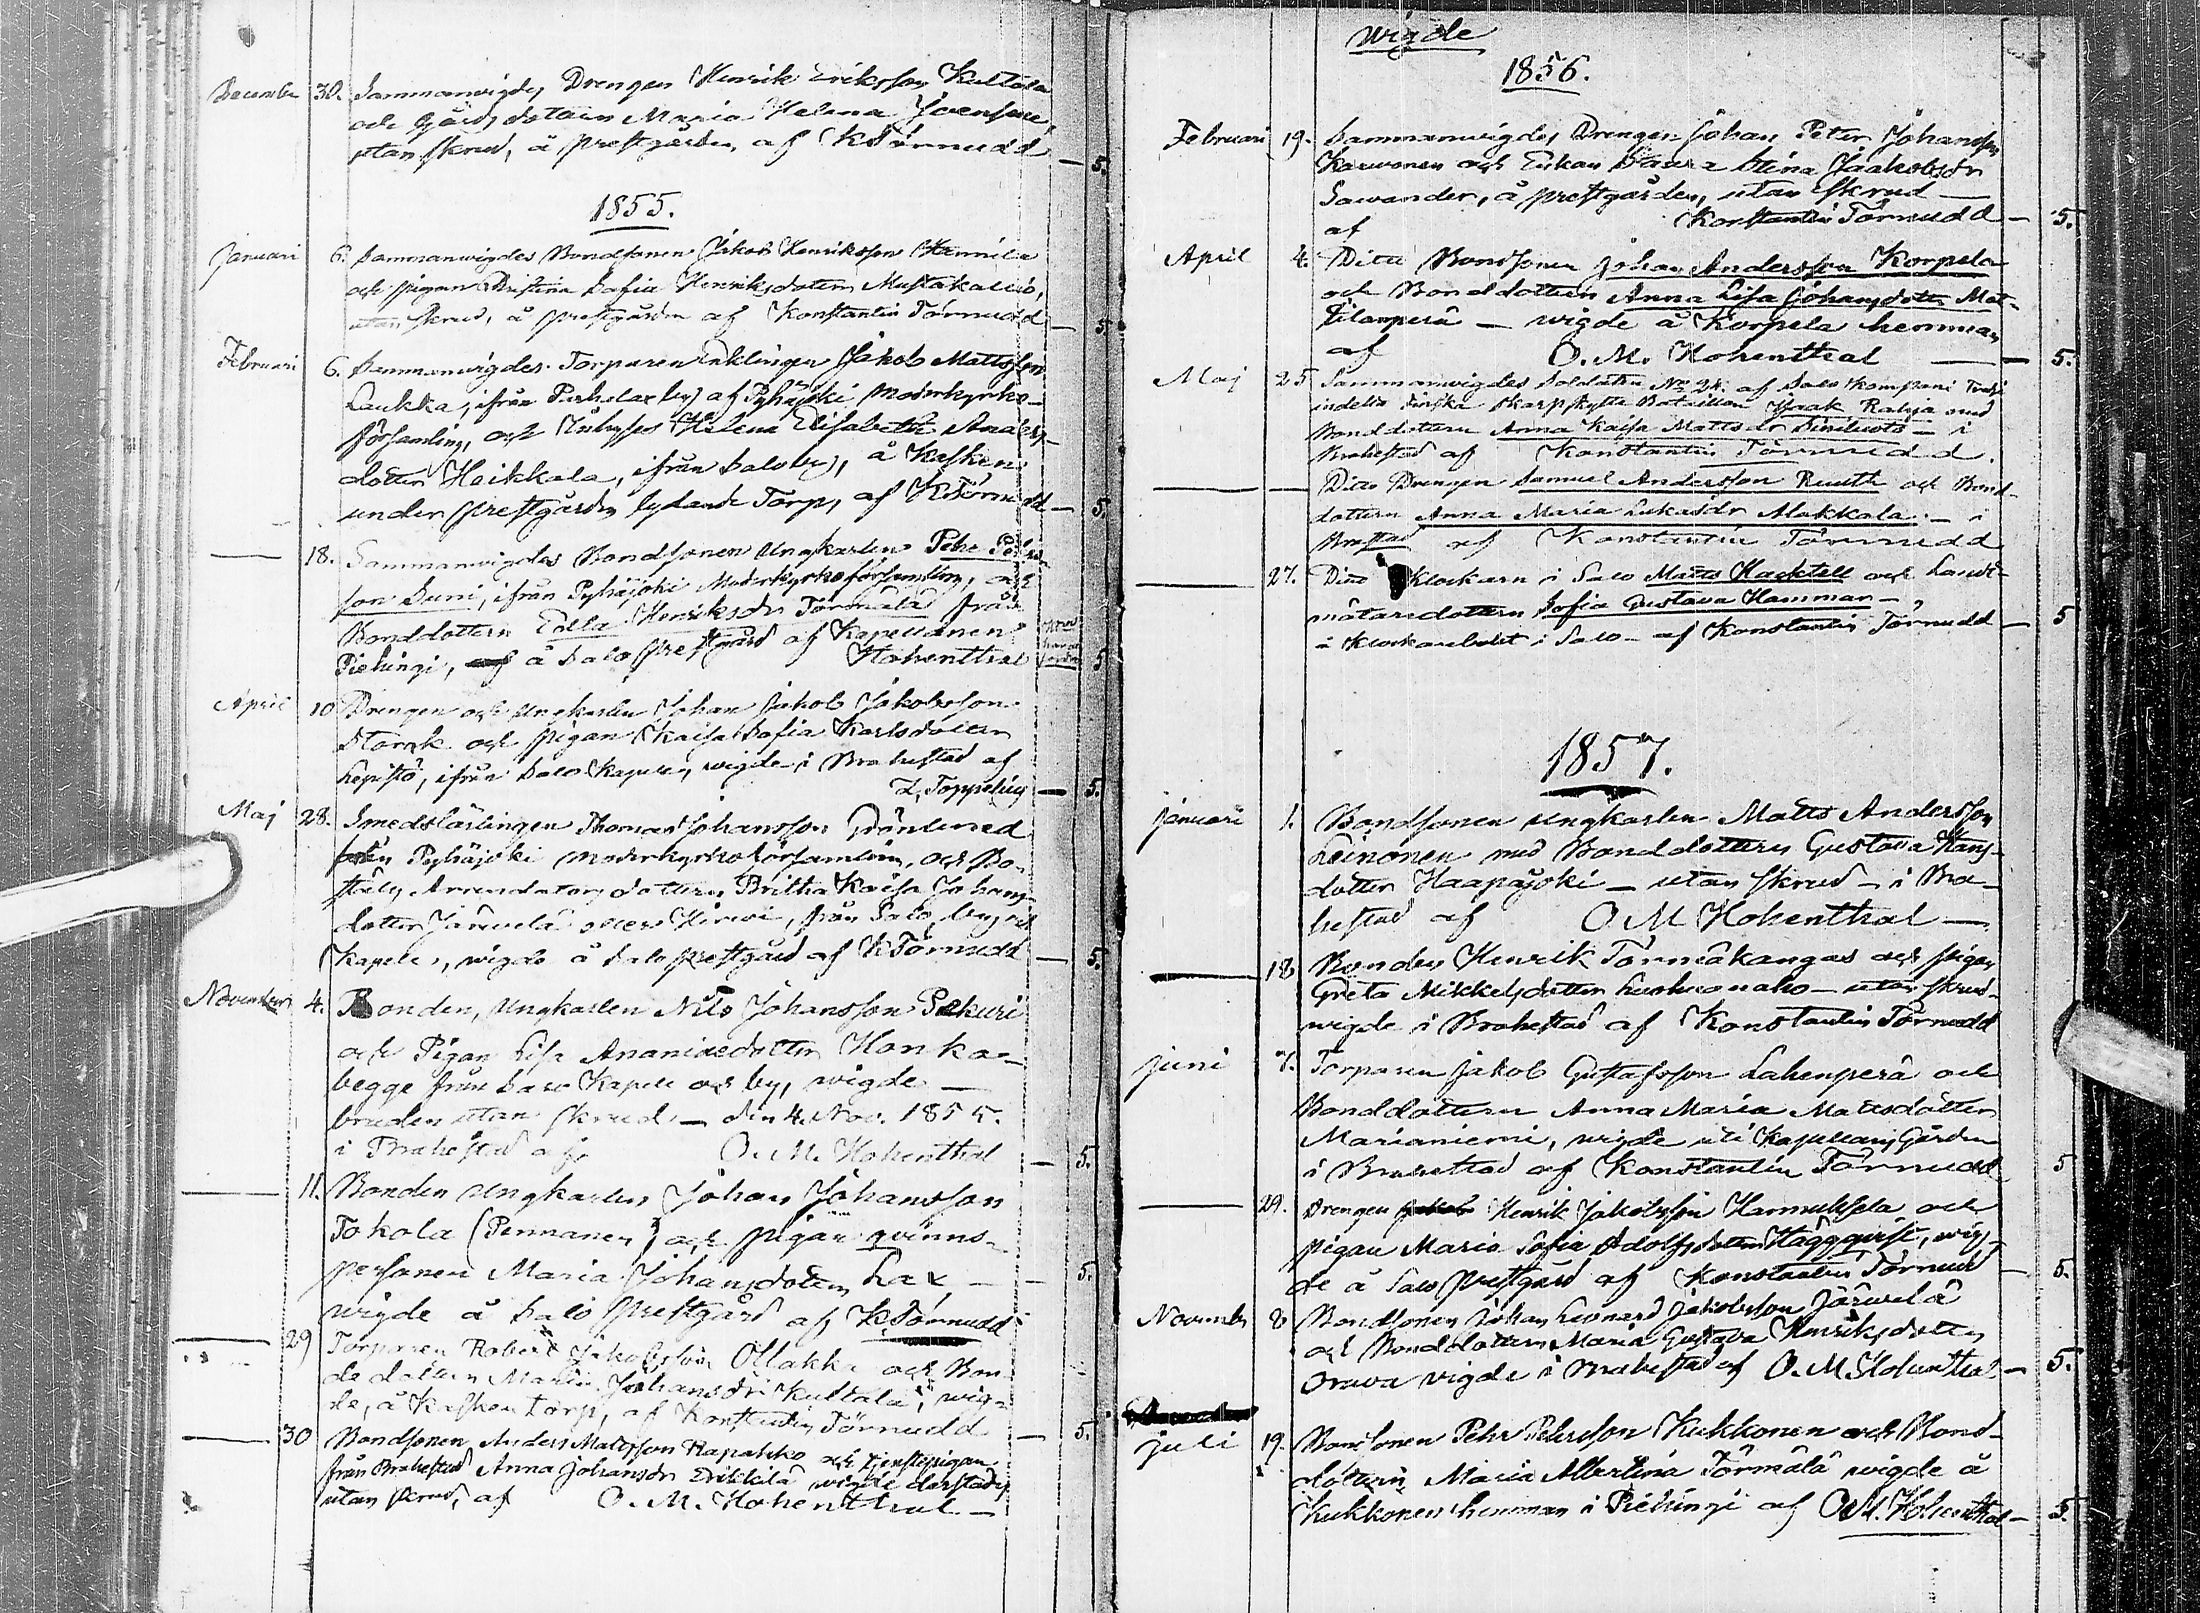 December 30. Sammanvigdes Drengen Henrik Eriksson Kultala
och Gårds dottern Maria Helena
utan skrud, å prestgården af KTörnudd — 5.
1855.
Januari 6. Sammanwigdes Bondsonen Jakob Henriksson Hannila
och pigan Kristina Sofia Henriksdotter Mustakallio,
utan skrud, å prestgården af Konstantin Törnudd — 5
Februari 6. Sammanwigdes Torparen Enklingen Jakob Mattsson
Laukka, ifrån by af Pyhäjoki Moderkyrko-
församling, och Helena Elisabeth
dotter Heikkala, ifrån Salo by, å Kasken
under prestgården lydande Torp, af KTörnudd — 5.
— 18. Sammanwigdes Bondsonen Ungkarlen Pehr
son Suni, ifrån Pyhäjoki Moderkyrkoförsamling, och
Bonddottern Henriksdr Törmälä från
Piehingi, å Salo prestgård af Kapellanen
Hohenthal 5
April 10 Drengen och Ungkarlen Johan Jakob Jakobsson
Stark och pigan Kaisa Sofia Karlsdotter
Lepistö, ifrån Salo Kapell, wigde i Brahestad af
Z. Toppelius — 5.
Maj 28. Smedslärlingen Thomas Johansson
från Pyhäjoki moderkyrkoförsamling, och Bo-
ställs Arrendators dottern Britha Kaisa Johans-
dotter Järwelä eller Hirwi, från Salo by och
Kapell, wigde å Salo prestgård af KTörnudd — 5.
November 4. Bonden, Ungkarlen Nils Johansson Pekuri
och Pigan Lisa Ananiaedotter Honka-
begge från Salo Kapell och by, wigde —
bruden utan skrud — den 4. Nov. 1855.
i Brahestad af O. M. Hohenthal — 5.
— 11. Bonden Ungkarlen Johan Johansson
Tokola (Pennanen) och pigan qvinns-
personen Maria Johansdotter Lax, — 5.
wigde å Salo prestgård af K.Törnudd
— 29 Torparen Robert Jakobsson Ollakka och Bon-
de dottern Maria Johansdr Kultala, wig-
de, å Kasken torp, af Konstantin Törnudd — 5.
— 30 Bondsonen Anders Mattsson Rapakko och tjenstepigan
från Brahestad Anna Johansdr Erikkilä wigde derstädes
utan skrud, af O. M. Hohenthal —
Wigde
1856.
Februari 19. Sammanwigdes Drengen Johan Peter Johansson
Karwonen och Enkan Stina Jaakobsdr
Sawander, å prestgården, utan skrud —
af Konstantin Törnudd — 5.
April 4. Ditto Bondsonen Johan Andersson Korpela
och Bonddottern Anna Lisa Johansdotter Mat-
tilanperä — wigde å Korpela hemman
af O. M. Hohenthal — 5.
Maj 25 Sammanwigdes Soldaten No 24. af Salo kompani
indelta Finska Skarpskytte Bataillon Isaak Rahja med
Bonddottern Anna Kaisa Mattsdr — i
Brahestad af Konstantin Törnudd.
— — Ditto Drengen Samuel Andersson Ruuth och Bond-
dottern Anna Maria Lukasdr Makkala — i
Brastad af Konstantin Törnudd
— 27. Dito Klockarn i Salo Matts Hacktell och Landt-
mätaredottern Sofia Gustava Hammar —
i Klockarebolet i Salo — af Konstantin Törnudd — 5
1857.
Januari 1. Bondsonen Ungkarlen Matts Andersson
Leinonen med Bonddottern Gustava Hans-
dotter Haapajoki — utan skrud — i Bra-
hestad af O M Hohenthal —
— 18 Bonden Henrik Törmäkangas och pigan
Greta Mikkelsdotter — utan skrud —
wigde i Brahestad af Konstantin Törnudd
Juni 7. Torparen Jakob Gustafsson Lahenperä och
Bonddottern Anna Maria Mattsdotter
Marianiemi, wigde uti Kapellans Gården
i Brahestad af Konstantin Törnudd 5
— 29. Drengen Henrik Jakobsson Harmuksela och
pigan Maria Sofia Adolfsdotter Häggqvist, wig-
de å Salo prestgård af Konstantin Törnudd — 5.
November 8 Bondsonen Johan Leonard Jakobsson Järwelä
och Bonddottern Maria Gustava Henriksdotter
Orava wigde i Brahestad af O. M. Hohenthal — 5.
Juli 19. Bondsonen Pehr Pehrsson Kukkonen och Bond-
dottern Maria Albertina Törmälä wigde å
Kukkonen hemman i Piehingi af O.M. Hohenthal — 5.